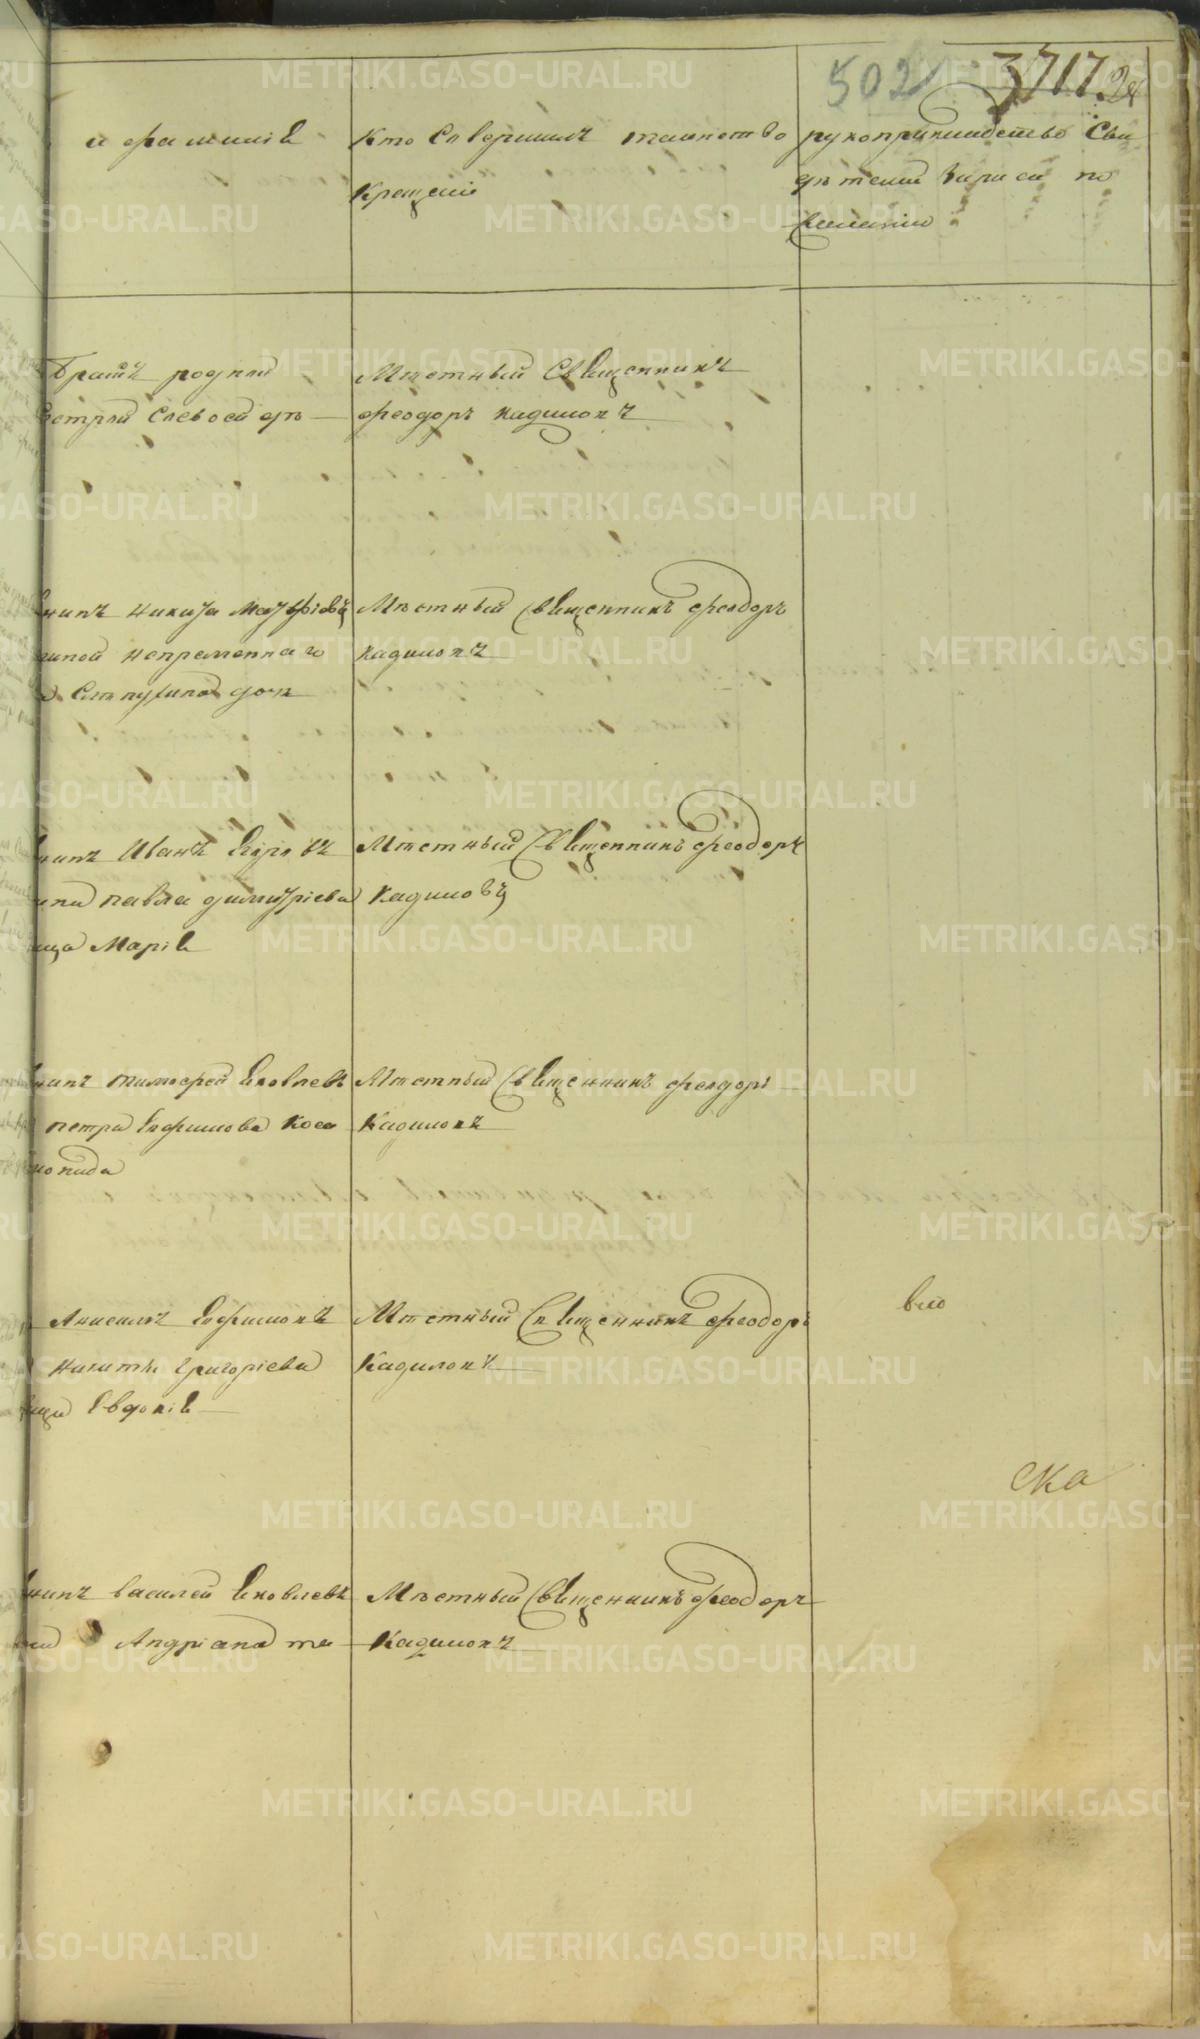 502 3717. 24
и фамилія
Кто Совершилъ таинство
Крещенія
рукоприкладство Сви
дѣтелей Записи по
желанію
Братъ родной
сестрой
Мѣстный Священникъ
Феодоръ Кадиловъ
Никита
непременнаго
дочь
Мѣстный Священникъ Феодоръ
Кадиловъ
Иванъ Егоровъ
Павла Димитріева
Марія
Мѣстный Священникъ Феодоръ
Кадиловъ
Тимофей Яковлевъ
Петра Ефимова Коса
Мѣстный Священникъ Феодоръ
Кадиловъ
Анисимъ Ефимовъ
Никиты Григоріева
Евдокія
Мѣстный Священникъ Феодоръ
Кадиловъ
Василей Яковлевъ
Андріана
Мѣстный Священникъ Феодоръ
Кадиловъ
ска
METRIKI.GASO-URAL.RU